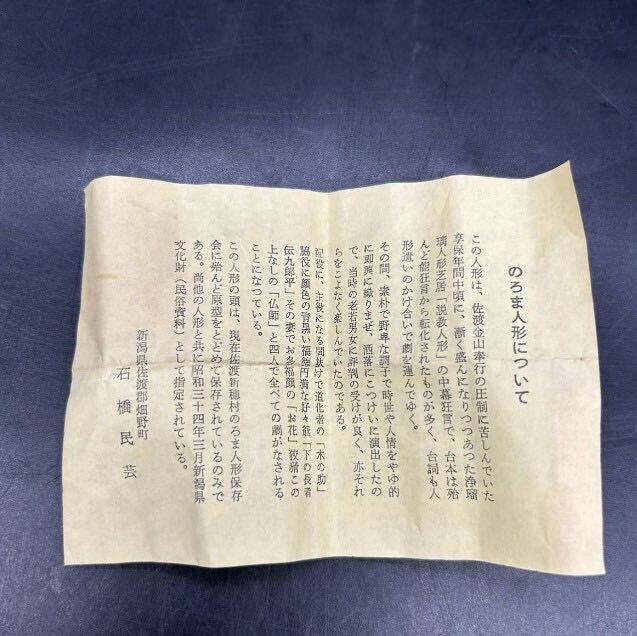 のろま人形について
この人形は、佐渡金山奉行の圧制に苦しんでいた
享保年間中頃に、漸く盛んになりつつあつた浄瑠
璃人形芝居「説教人形」の中幕狂言で、台本は殆
んど能狂言から転化されたものが多く、台詞も人
形遣いのかけ合いで劇を運んでゆく。
その間、素朴で野卑な調子で時世や人情をやゆ的
に即興に織りまぜ、洒落にこつけいに演出したの
で、当時の老若男女に評判の受けが良く、亦それ
らをこよなく楽しんでいたのである。
配役に、主役になる間抜けで道化者の「木の助」
脇役に顔色の青黒い福徳円満な好々爺「下の長者
伝九郎平」その妻でお多福顔の「お花」狡猾この
上なしの「仏師」と四人で全べての劇がなされる
ことになつている。
この人形の頭は、現在佐渡新穂村のろま人形保存
会に殆んど原型をとどめて保存されているのみで
ある。尚他の人形と共に昭和三十四年三月新潟県
文化財（民俗資料）として指定されている。
新潟県佐渡郡畑野町
石橋民芸